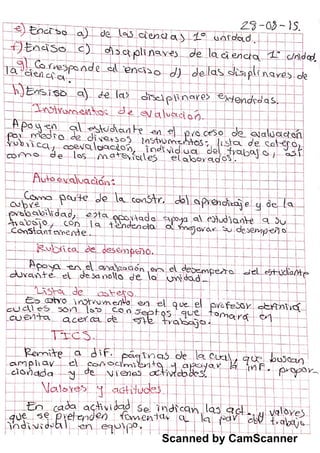 29-08-15.
e) Enciso a) de las ciencias 1° unidad.
f) Enciso c) disciplinares de la ciencia 1° unidad.
g) Corresponde al enciso d) de las disiplinares de
la ciencia.
h) Ensiso a) de las disciplinares extendidas.
Instrumentos de evaluacion.
Apoyen al estudiante en el proceso de evaluación
por medio de diversos instrumentos: lista de cotejo,
rubrica, coevaluación, individua del trabajo, así
como de los materiales elaborados.
Autoevaluación:
Como parte de la constr. del aprendizaje y de la
probabilidad, esta apoya al estudiante a su
trabajo, con la tendencia a mejorar su desempeño
constantemente.
Rubrica de desempeño.
Apoya en el en el desempeño del estudiante
durante el desarollo de la unidad.
Lista de cotejo.
Es otro instrumento en el que el profesor definirá
cuáles son los conseptos que tomará en
cuenta acerca de este trabajo.
TICS.
Remite a dif. páginas de la cual, que buscan
ampliar el conocimiento y apoyar la inf. propor-
cionada y de vienas actividades.
Valores y actitudes
En cada actividad se indican las act. y valores
que se pretenden fomentar a la par del trabajo
individual en equipo.
Scanned by CamScanner